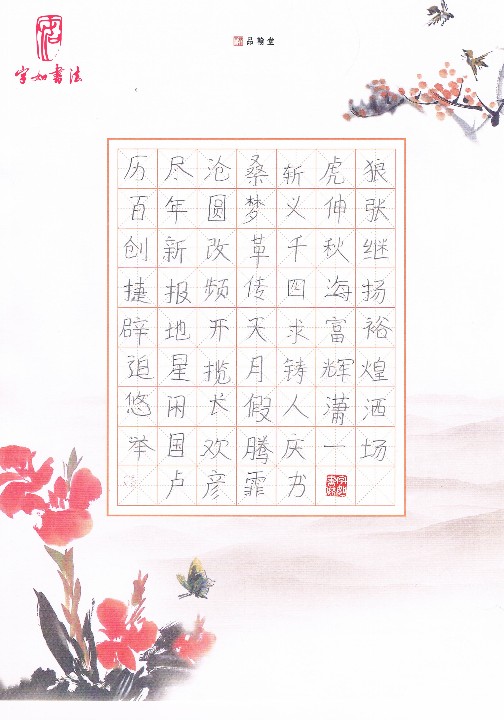 字如書法
历尽沧桑斩虎狼
百年圆梦义伸张
创新改革千秋继
捷报频传四海扬
辟地开天求富裕
追星揽月铸辉煌
悠闲长假人潇洒
举国欢腾庆一场
卢彦霏书